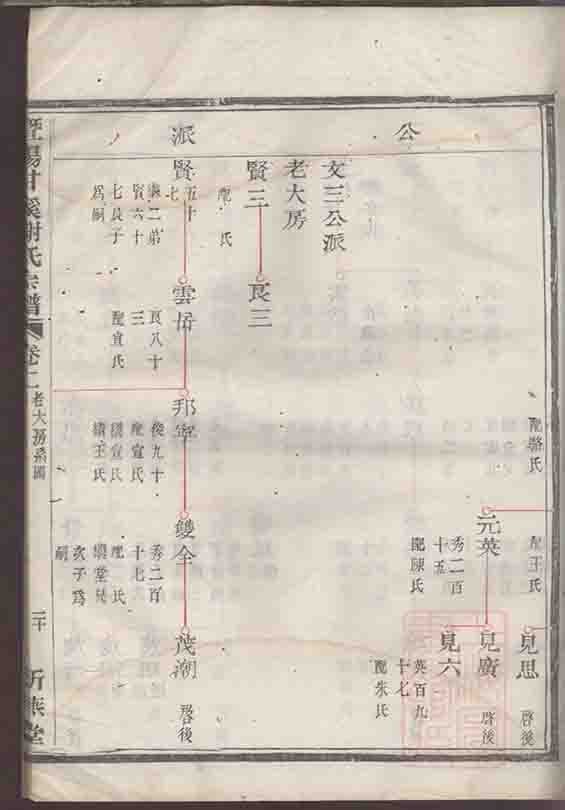 公
派
配駱氏
配王氏
見思
啓後
元英
秀二百
十五
配陳氏
見廣
啓後
見六
英百九
十七
配朱氏
文三公派
老大房
賢三
配 氏
良三
賢七
五十
賢六十
七良子
爲嗣
雲岳
良八十
三
配宣氏
邦寧
俊九十
配宣氏
續宣氏
續王氏
雙全
秀二百
十七
配 氏
次子爲
嗣
茂潮
啓後
暨陽甘溪謝氏宗譜
卷二
老大房系圖
二十